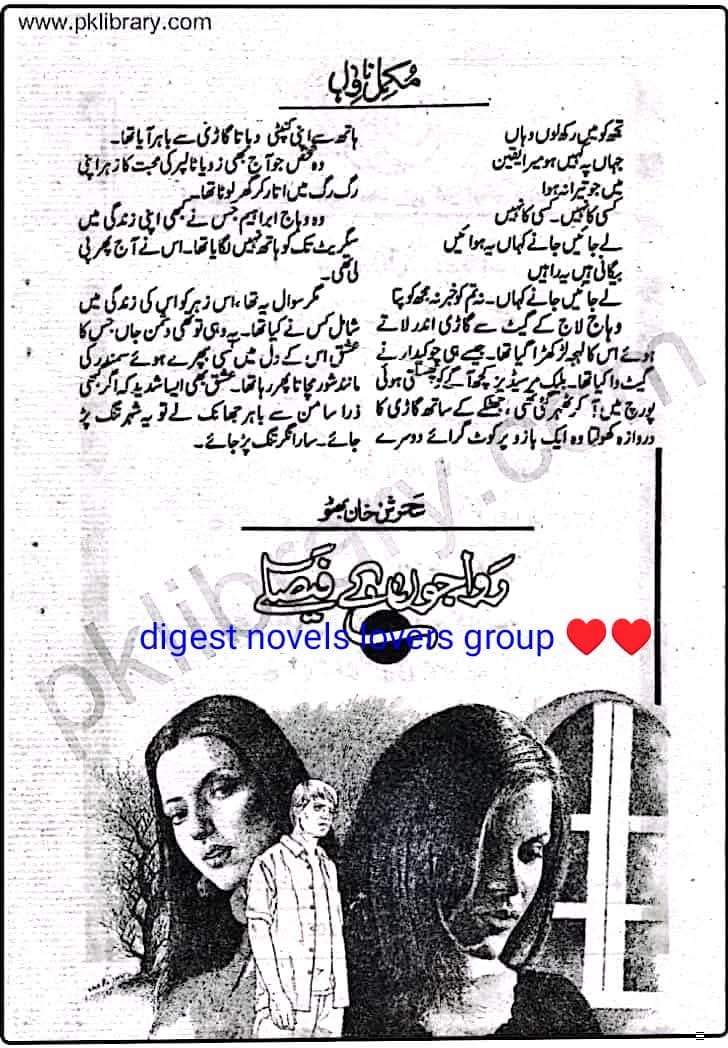 www.pklibrary.com
مُکمل ناول
تجھ کو میں رکھ لوں وہاں
جہاں پہ کہیں ہو میرا یقین
میں جو تیرا نہ ہوا
کسی کا نہیں۔ کسی کا نہیں
لے جائیں جانے کہاں یہ ہوائیں
بیگانی ہیں یہ راہیں
لے جائیں جانے کہاں۔ نہ تم کو خبر نہ مجھ کو پتا
وہاج لاج کے گیٹ سے گاڑی اندر لاتے
ہوئے اس کا لہجہ لڑکھڑا گیا تھا۔ جیسے ہی چوکیدار نے
گیٹ وا کیا تھا۔ بلیک مرسڈیز کچھ آگے کو پھسلتی ہوئی
پورچ میں آ کر ٹھہر گئی تھی، جھٹکے کے ساتھ گاڑی کا
دروازہ کھولتا وہ ایک بازو پر کوٹ گرائے دوسرے
ہاتھ سے اپنی کنپٹی دباتا گاڑی سے باہر آیا تھا۔
وہ شخص جو آج بھی زویا تالپر کی محبت کا زہر اپنی
رگ رگ میں اتار کر گھر لوٹا تھا۔
وہ وہاج ابراہیم جس نے کبھی اپنی زندگی میں
سگریٹ تک کو ہاتھ نہیں لگایا تھا۔ اس نے آج پھر پی
لی تھی۔
مگر سوال یہ تھا، اس زہر کو اس کی زندگی میں
شامل کس نے کیا تھا۔ یہ وہی تو تھی دشمن جاں جس کا
عشق اس کے دل میں کسی بپھرے ہوئے سمندر کی
مانند شور مچاتا پھر رہا تھا۔ عشق بھی ایسا شدید کہ اگر کبھی
ذرا سا من سے باہر جھانک لے تو یہ شہر تنگ پڑ
جائے۔ سارا نگر تنگ پڑ جائے۔
سحرش خان بھٹو
رواجوں کے فیصلے
digest novels lovers group ❤️❤️
pklibrary.com